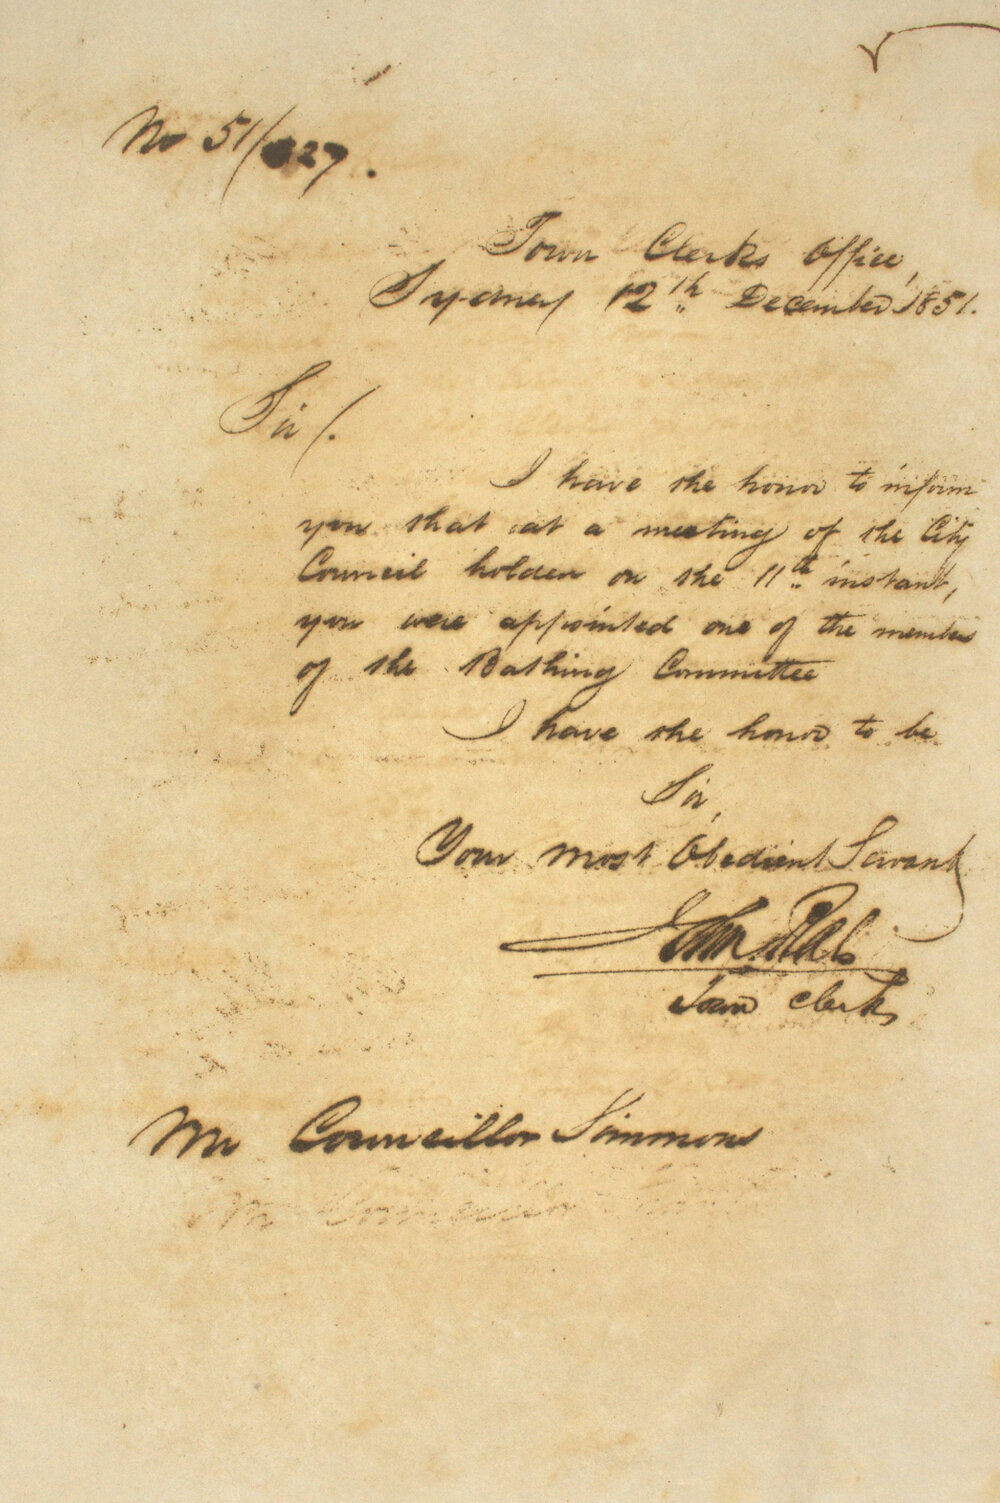 No 51/827.
Town Clerks Office,
Sydney 12th December 1851.
Sir/.
I have the honor to inform
you that at a meeting of the City
Council holden on the 11th instant,
you were appointed one of the members
of the Bathing Committee
I have the honor to be
Sir,
Your most Obedient Servant
John Rae
Town Clerk
Mr Councillor Simmons